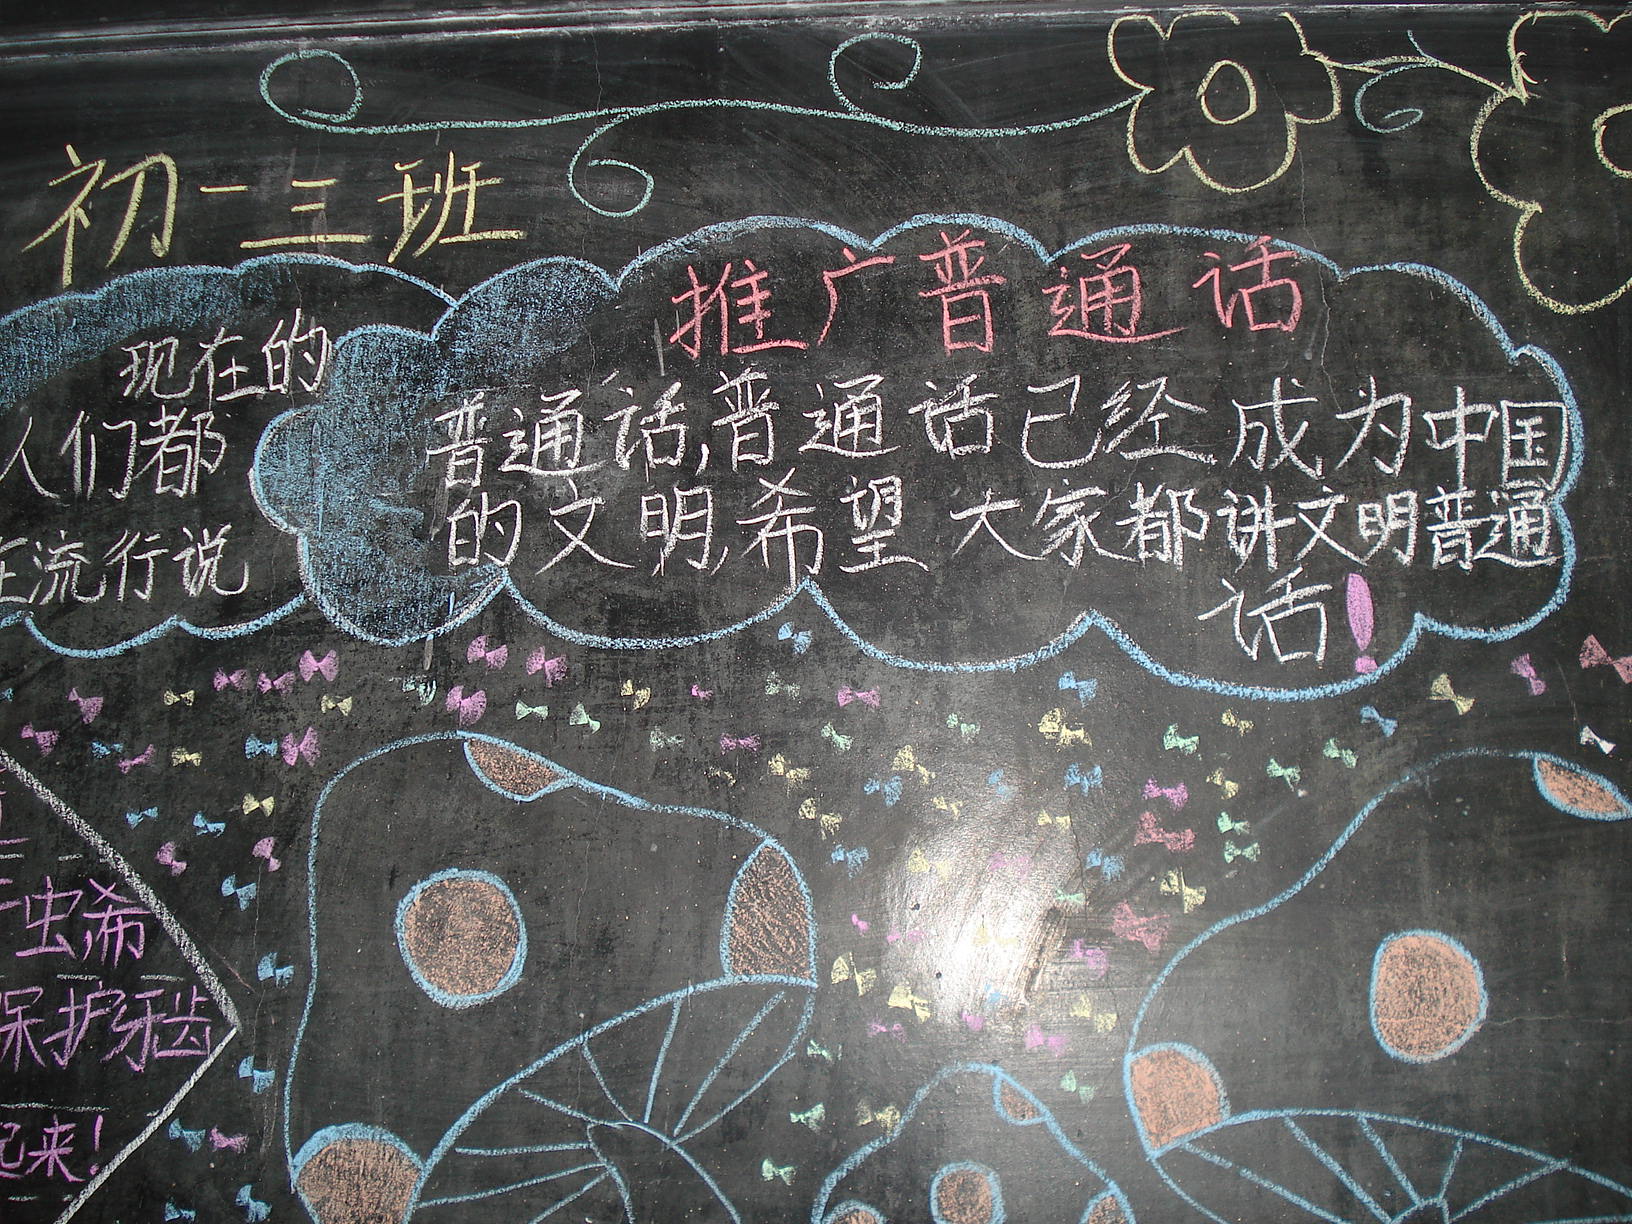 初一三班
推广普通话
现在的
人们都
在流行说
普通话,普通话已经成为中国
的文明,希望大家都讲文明普通
话!
虫,希
保护牙齿
起来!